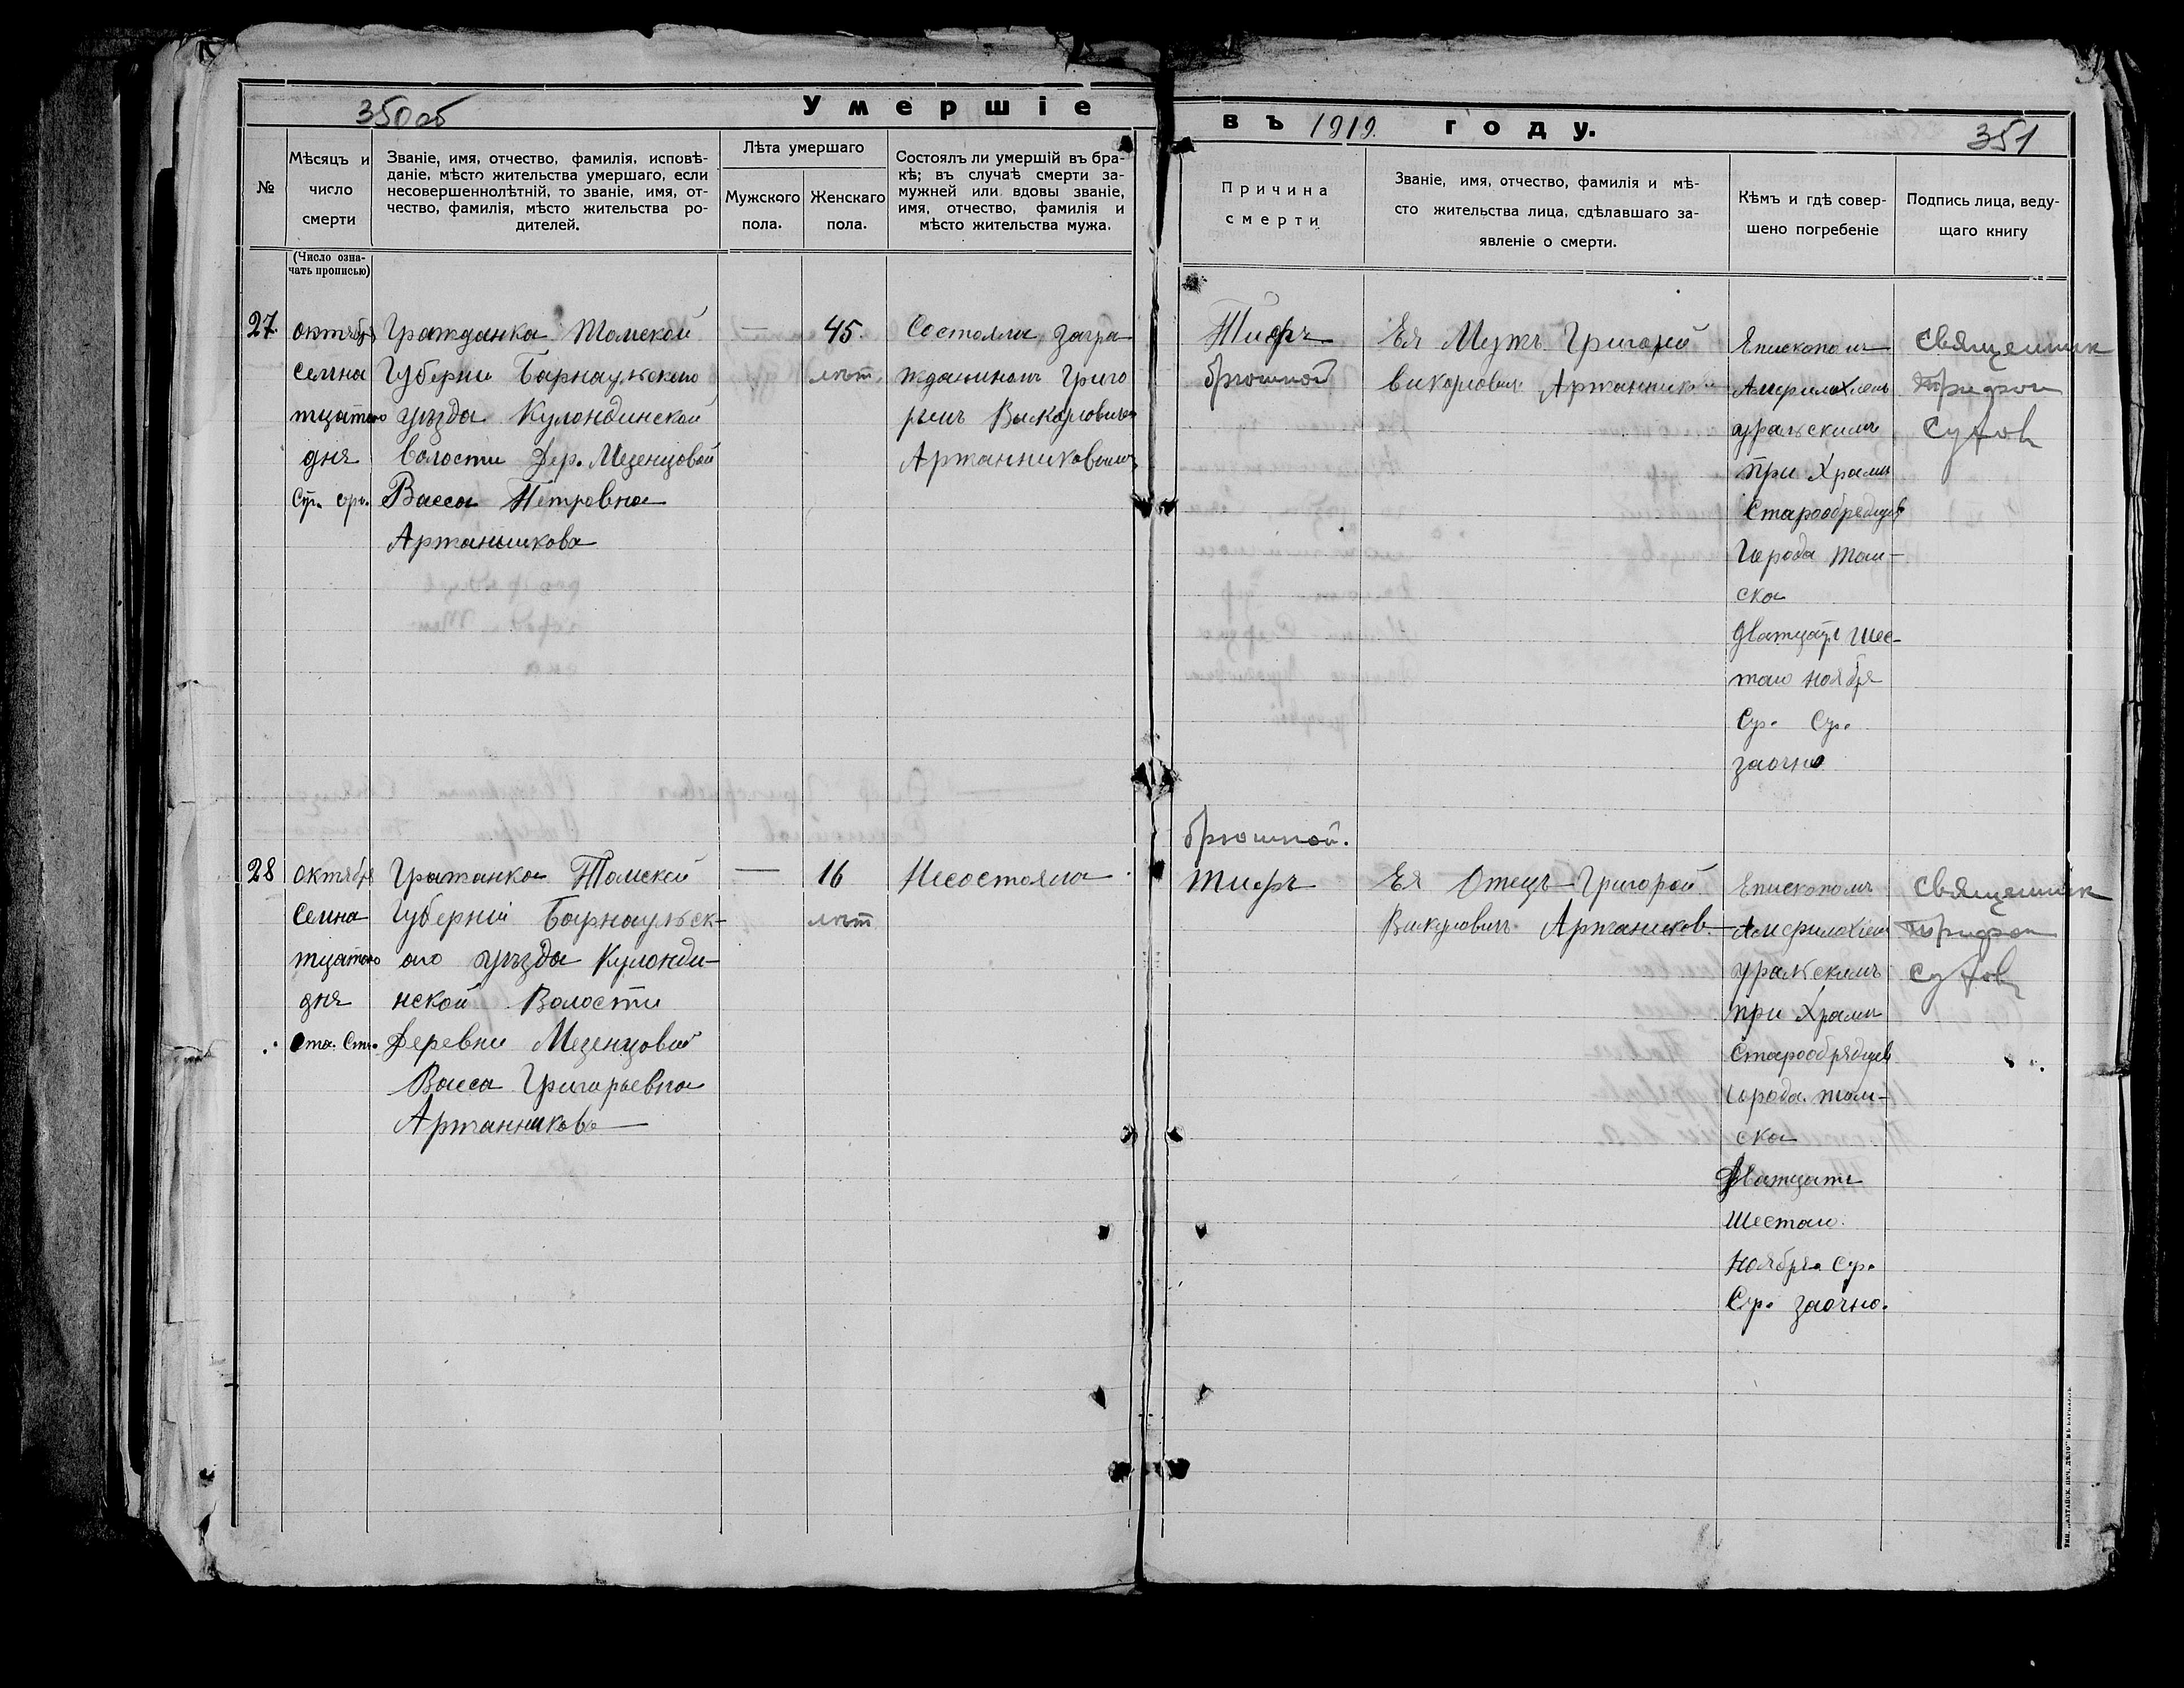 350об
Умершіе
въ 1919. году.
351
№
Мѣсяцъ и
число
смерти
Званіе, имя, отчество, фамилія, исповѣ-
даніе, мѣсто жительства умершаго, если
несовершеннолѣтній, то званіе, имя, от-
чество, фамилія, мѣсто жительства ро-
дителей.
Лѣта умершаго
Мужского
пола.
Женскаго
пола.
Состоялъ ли умершій въ бра-
кѣ; въ случаѣ смерти за-
мужней или вдовы званіе,
имя, отчество, фамилія и
мѣсто жительства мужа.
Причина
смерти
Званіе, имя, отчество, фамилія и мѣ-
сто жительства лица, сдѣлавшаго за-
явленіе о смерти.
Кѣмъ и гдѣ совер-
шено погребеніе
Подпись лица, веду-
щаго книгу
(Число озна-
чать прописью)
27.
октября
семна
тцатого
дня
Гражданка Томской
Губерни Барнаульского
уѣзда Кулондинской
волости Дер. Мезенцовой
Васса Петровна
Артанникова
—
45.
лѣт.
Состояла загра
жданиномъ Григо
рьемъ Викуловичем
Артанниковымъ
Тифъ
брюшной
Ея Мужъ Григорий
Викуловичъ Артанников
Епископомъ
Амфилохием
уральскимъ
при Храмѣ
Старообрядцев
Города Том-
ска
Дватцат Шес-
таго ноября
Ст. Ст.
заочно
Священник
Трифон
Сухов
28
октября
Семна
тцатого
дня
Ста. Сти.
Гражанка Томской
Губерніи Барнаульск-
ого уѣзда Кулонди-
нской Волости
Деревни Мезенцовой
Васса Григорьевна
Артанникова
—
16
лѣт
Несостояла
брюшной.
тифъ
Ея Отецъ Григорой
Викуловичъ Артаников.
Епископомъ
Амфилохием
уральскимъ
при Храмѣ
Старообрядцев
города том-
ска
Дватцати
Шестаго
Ноября Ст.
Ст. заочно.
Священник
Трифон
Сухов